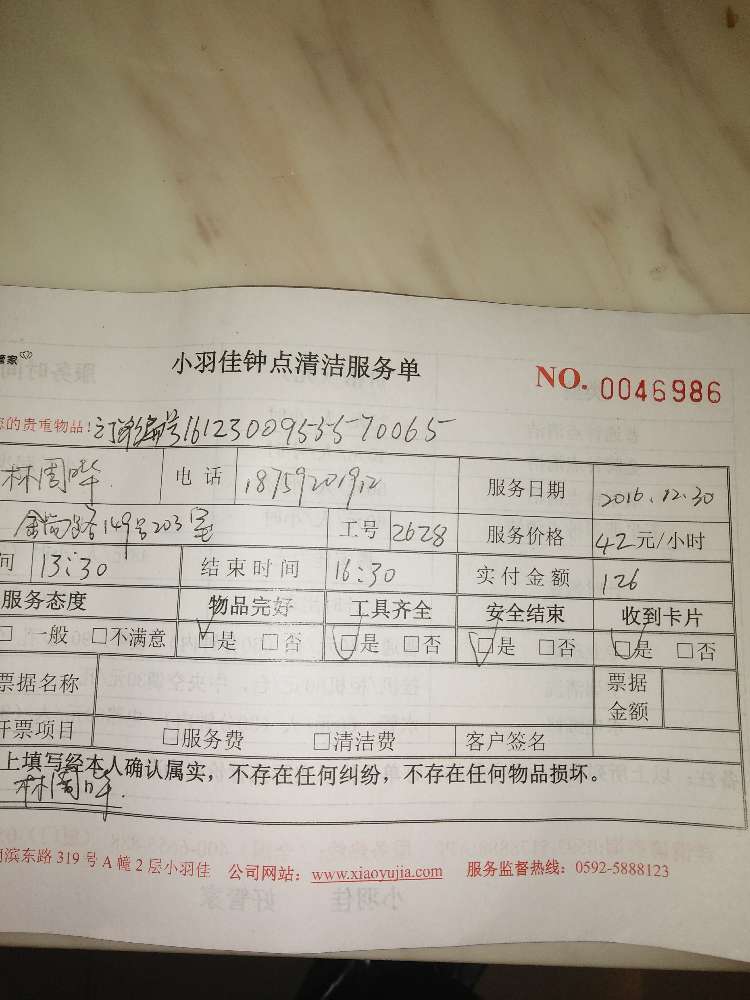 管家
小羽佳钟点清洁服务单
NO. 0046986
您的贵重物品! 订单编号16123009555570065
林周晔 电话 18759201912 服务日期 2016.12.30
149号203室 工号 2628 服务价格 42元/小时
间 13:30 结束时间 16:30 实付金额 126
服务态度 物品完好 工具齐全 安全结束 收到卡片
□ 一般 □不满意 □是 □否 □是 □否 □是 □否 □是 □否
票据名称 票据金额
开票项目 □服务费 □清洁费 客户签名
上填写经本人确认属实,不存在任何纠纷,不存在任何物品损坏。
林周晔
湖滨东路 319 号 A 幢 2 层小羽佳 公司网站:www.xiaoyujia.com 服务监督热线:0592-5888123